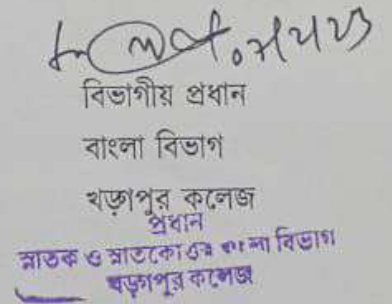 বিভাগীয় প্রধান
বাংলা বিভাগ
খড়্গপুর কলেজ
প্রধান
স্নাতক ও স্নাতকোত্তর বাংলা বিভাগ
খড়্গপুর কলেজ